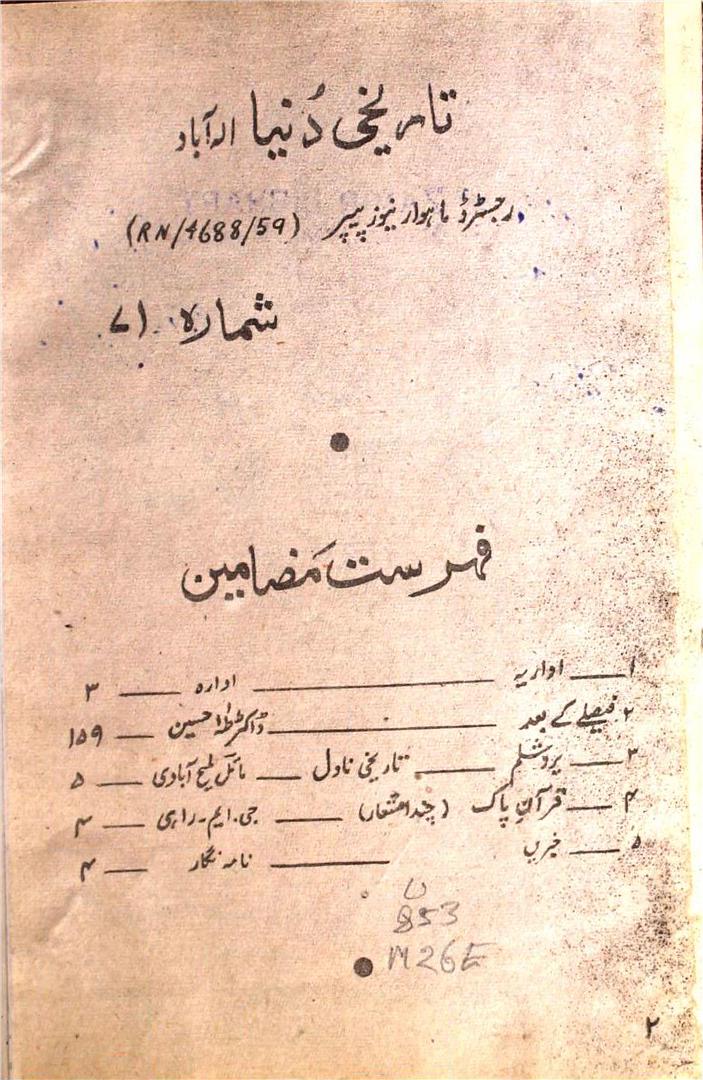 تاریخی دُنیا الہ آباد
رجسٹرڈ ماہوار نیوز پیپر (RN/4688/59)
شمارہ ۷۱
فہرست مَضامین
۱ — اداریہ — ادارہ — ۳
۲ فیصلے کے بعد — ڈاکٹر طٰہٰ حسین — ۱۵۹
۳ — یروشلم — تاریخی ناول — مائل ملیح آبادی — ۵
۴ — قرآنِ پاک (چند اشعار) — جی۔ایم۔راہی — ۴
۵ — خبریں — نامہ نگار — ۴
U
853
M26E
۲